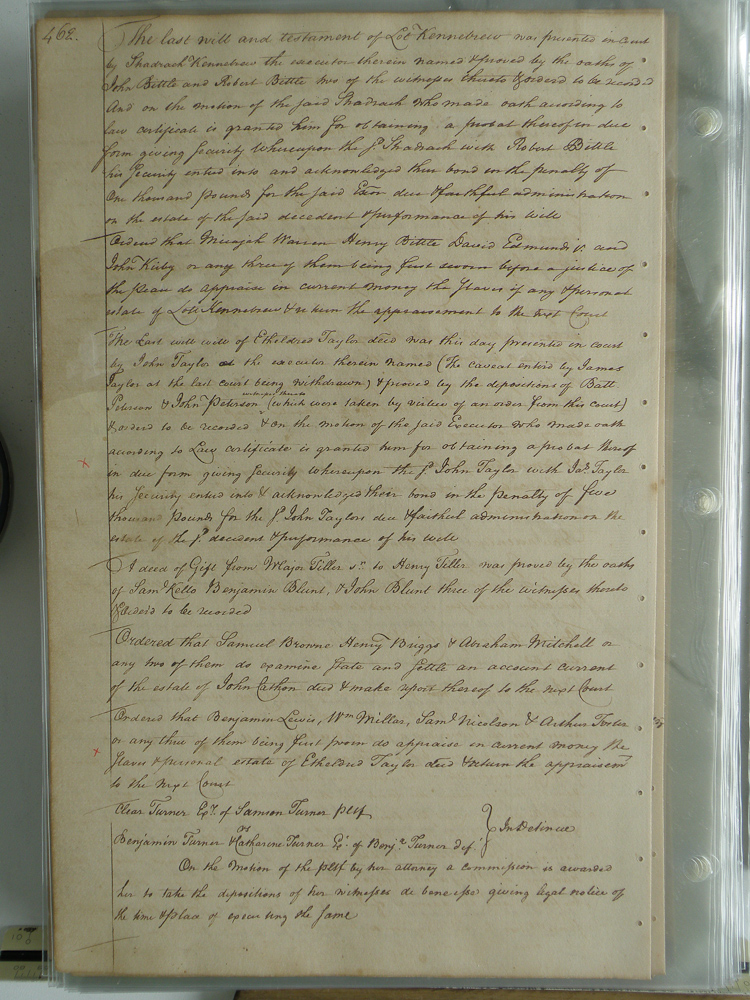 462.
The last will and testament of Lott Kennebrew was presented in Court
by Shadrach Kennebrew the executor therein named & proved by the oaths of
John Bittle and Robert Bittle two of the witnesses thereto & ordered to be recorded
And on the motion of the said Shadrach who made oath according to
law certificate is granted him for obtaining a probat thereof in due
form giving Security Whereupon the sd. Shadrach with Robert Bittle
his Security entred into and acknowledged their bond in the penalty of
One thousand pounds for the said Exors. due & faithful administration
on the estate of the said decedent & performance of his will
Ordered that Micajah Warren Henry Bittle David Edmunds jr. and
John Kirby or any three of them being first sworn before a justice of
the peace do appraise in current money the slaves if any & personal
estate of Lott Kennebrew & return the appraisement to the next Court
The Last will of Etheldred Taylor decd was this day presented in court
by John Taylor the executor therein named (The caveat enterd by James
Taylor at the last court being withdrawn) & proved by the depositions of Batt
witnesses thereto
Peterson & John Peterson (which were taken by virtue of an order from this court)
& orderd to be recorded & on the motion of the said Executor who made oath
according to Law certificate is granted him for obtaining a probat thereof
in due form giving Security whereupon the sd. John Taylor with Jas. Taylor
his Security entred into & acknowledged their bond in the penalty of five
thousand pounds for the sd. John Taylors due & faithful administration on the
estate of the sd. decedent & performance of his will
A deed of Gift from Major Tiller sr. to Henry Tiller was proved by the oaths
of Saml. Kello Benjamin Blunt, & John Blunt three of the witnesses thereto
& orderd to be recorded
Ordered that Samuel Browne Henry Briggs & Abraham Mitchell or
any two of them do examine state and settle an account current
of the estate of John Cathon decd & make report thereof to the next Court
Ordered that Benjamin Lewis, Wm Millar, Saml. Nicolson & Arthur Foster
or any three of them being first sworn do appraise in current money the
slaves & personal estate of Etheldred Taylor decd & return the appraisemt
to the next Court
Clear Turner Exr. of Samson Turner pltf
vs
In Detinue
Benjamin Turner & Catharine Turner Exr. of Benja. Turner def.
On the motion of the pltf by her attorney a commission is awarded
her to take the depositions of her witnesses de bene esse giving legal notice of
the time & place of executing the same